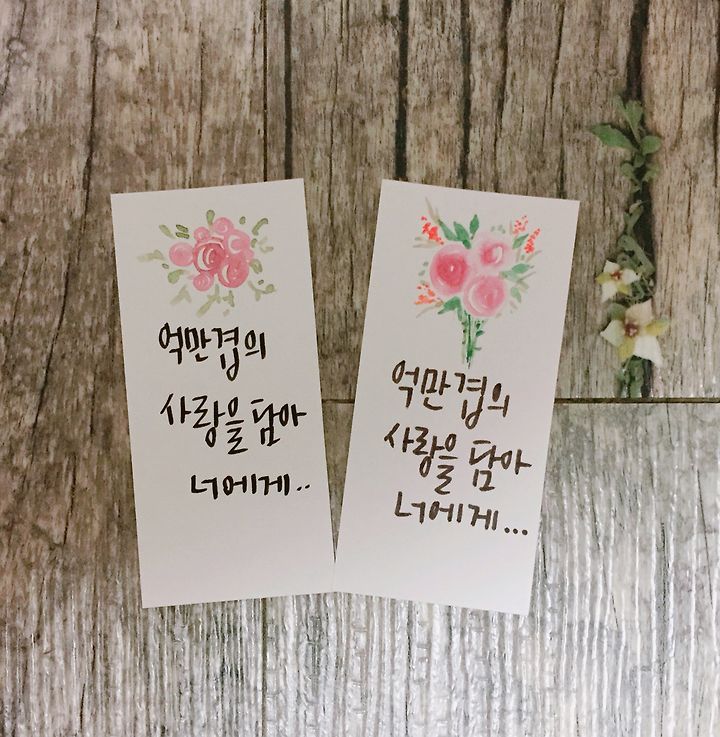 억만겹의
사랑을 담아
너에게..
억만겹의
사랑을 담아
너에게...